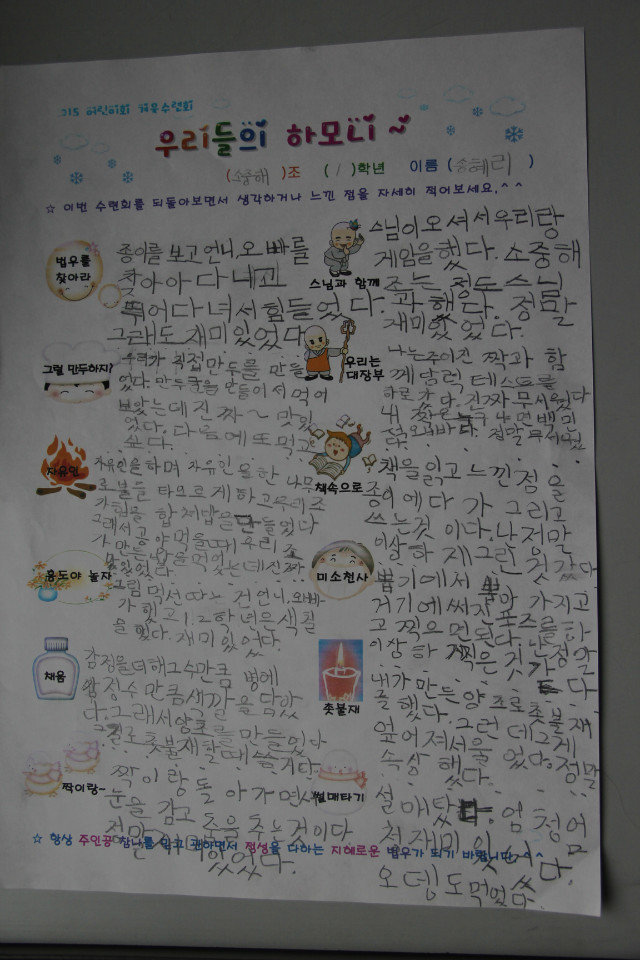 015 어린이회 겨울수련회
우리들의 하모니~
(소중해)조 (1)학년 이름 (송혜리)
☆ 이번 수련회를 되돌아보면서 생각하거나 느낀 점을 자세히 적어보세요.^^
법우를
찾아라
종이를 보고 언니,오빠를
찾아아 다니고
뛰어다녀서 힘들었다.
그래도 재미있었다
스님과 함께
스님이 오셔서 우리랑
게임을 했다. 소중해
조는 절도 스님
과 했다. 정말
재미있었다.
그럴 만두하지!
우리가 직접 만두를 만들
었다. 만두를 만들어서 먹어
보았는데 진짜~ 맛있
었다. 다음에 또 먹고
싶다.
우리는
대장부
나는 주이진 짝과 함
께 담력 테스트를
하로 갔다. 진짜 무서웠다
내
정말 무서웠
자유인
자유인을 하며 자유인 을 한 나무
로 불을 타오르게 하고 우리 조
가 힘을 합쳐 답을 만들었다
그래서 공양 먹을때 우리
가 만든 답을 먹었는데 진짜
맛있었다.
책속으로
책을 읽고 느낀 점을
종이에다가 그리고
쓰는것 이다. 나 정말
이상하 제 그린 것 같다
용도야 놀자
그림
가 했고 1.2학년은 색칠
을 했다. 재미 있었다.
미소천사
뽑기에서 뽑아 가지고
거기에 써진 포즈를 하
고 찍으면 된다. 난 정말
이상하 게 찍은 것 같
다
채움
감정을 더해 그 수만큼 병에
감정수 만큼 색깔 을 담았
다. 그래서 양초를 만들었다
그 걸로 촛불재 할때 쓸거다.
촛불재
내가 만든 양초로 촛불재
를 했다. 그런데 그게
엎어져서 울었다. 정말
속상 했다.
짝이랑~
짝이랑 돌아가면서
눈을 감고 춤을 추는 것이다
정말 재미있었다.
썰매타기
설매탔다. 엄청 엄
청 재미 있었다.
오뎅도 먹었다.
☆ 항상 주인공 참나를 믿고 관하면서 정성을 다하는 지혜로운 법우가 되기 바랍니다.^^